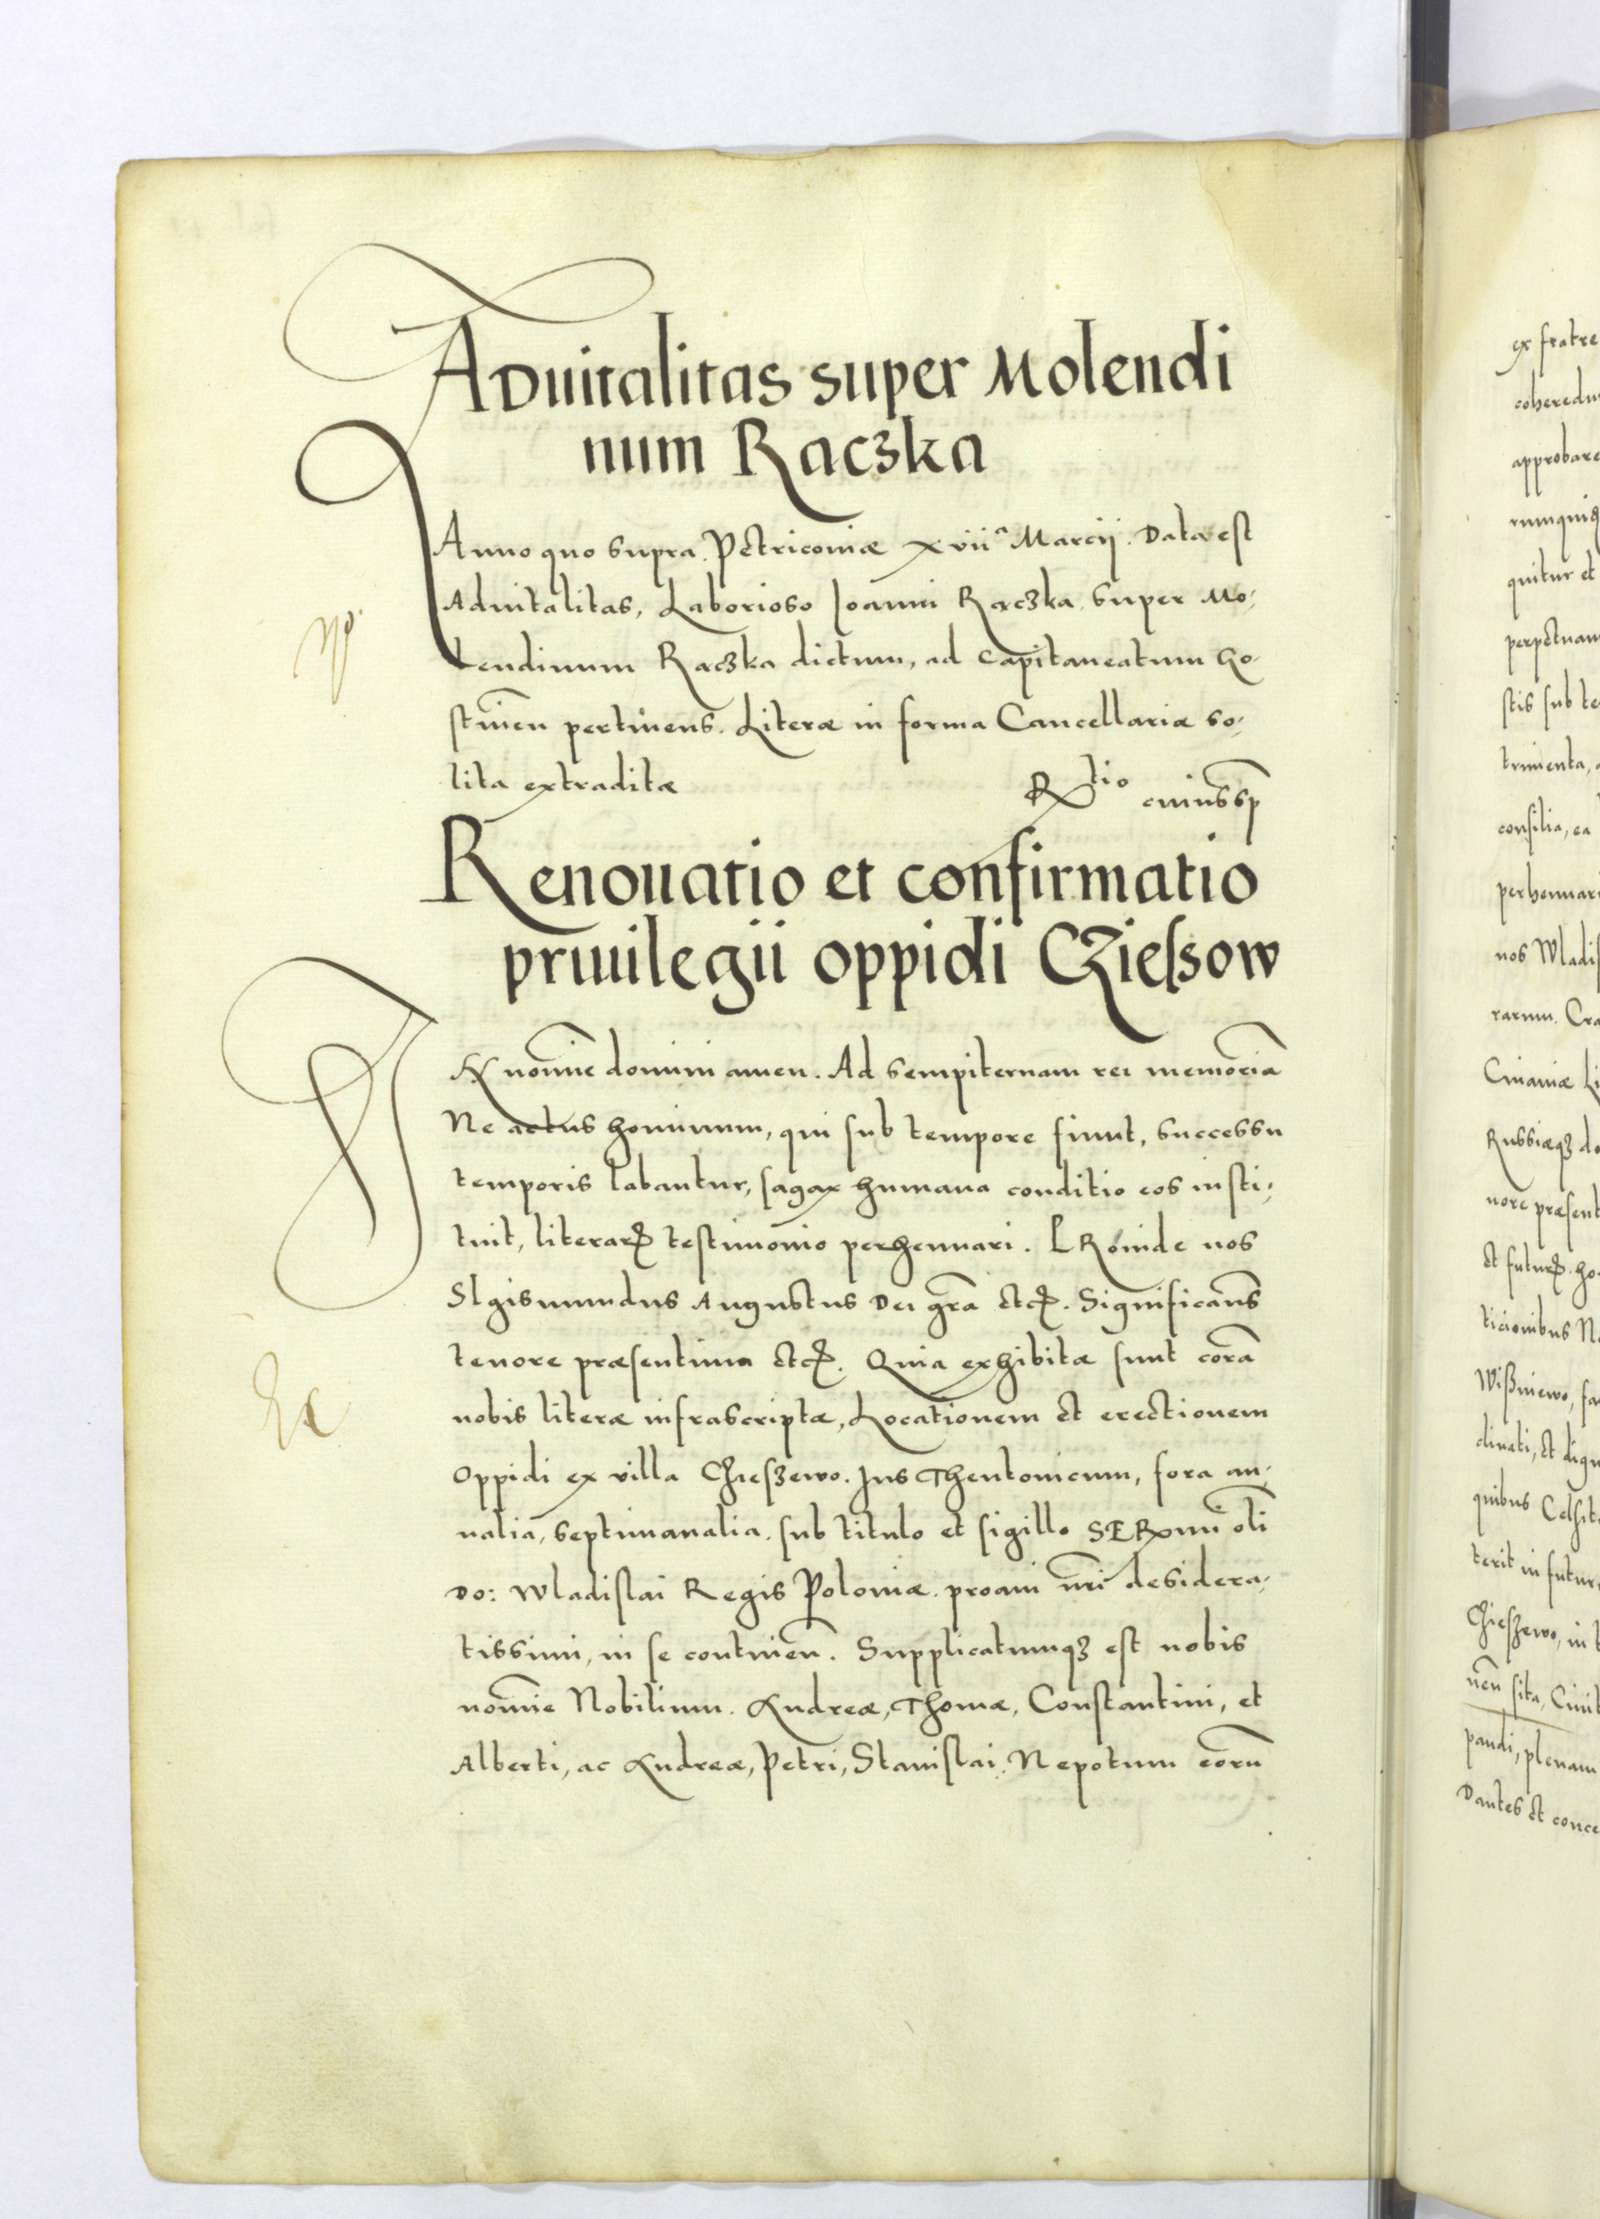 Aduitalitas super Molendi
num Raczka
Anno quo supra. Petricoviæ xvii^a Marcij. Data est
Aduitalitas, Laborioso Joanni Raczka super Mo,
lendinum Raczka dictum, ad Capitaneatum Go,
stinien pertinens. Literæ in forma Cancellariæ so,
lita extraditæ
R^tio cuiussp
Renouatio et confirmatio
priuilegii oppidi Czielsow
IN no͞mie domini amen. Ad sempiternam rei memoria͞
Ne actus hominum, qui sub tempore fiunt, successu
temporis labantur, sagax humana conditio eos insti,
tuit, literarꝝ testimonio perhennari. PRoinde nos
SIgismundus Augustus Dei gra͞ etcꝝ. Significam͞s
tenore præsentium etcꝝ. Quia exhibitæ sunt cora͞
nobis literæ infrascriptæ, Locationem et erectionem
Oppidi ex villa Chieszewo. Jus Thentonicum, fora an,
nalia, septimanalia. sub titulo et sigillo SERmi͞ oli͞
Do: Wladislai Regis Poloniæ. proaui nri͞ desidera,
tissimi, in se continen͞. Supplicatumqꝫ est nobis
no͞mie Nobilium. Andreæ, Thomæ, Constantini, et
Alberti, ac Andreæ, Petri, Stanislai. Nepotum eoru͞
ex fratre
approbare
quitur et
perpetuam
stis sub te
trimenta,
consilia, ea
perhennari
nos Wladis
rarum. Cra
Cuiauiæ Li
Russiæqꝫ do
nore præsent
et futurꝝ. ho
ticionibus N
Wißniewo, fa
dinati, et dign
quibus Celsit
terit in futur
Chieszewo, in t
nen͞ sita, Ciuit
pandi, plenam
Dantes et conce